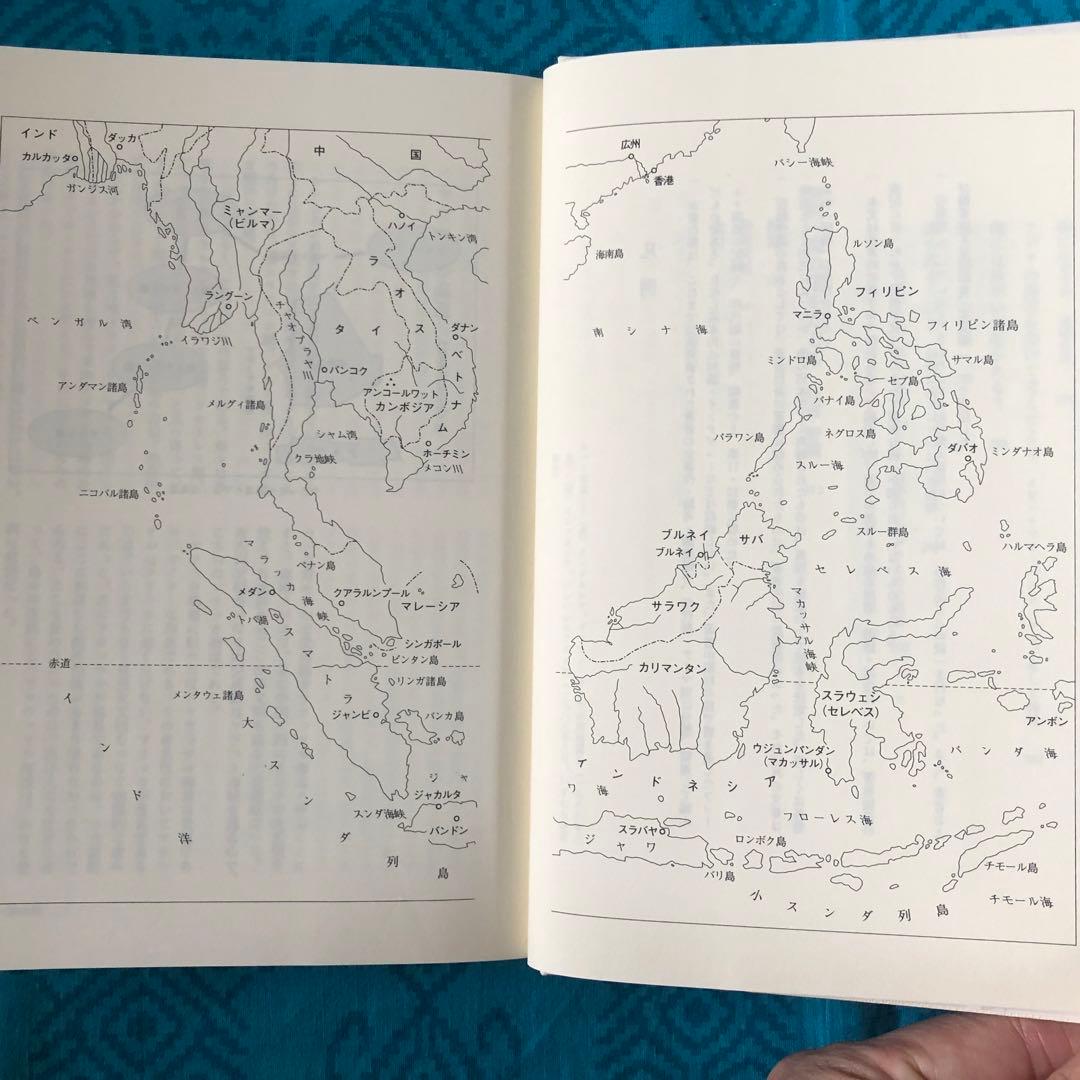 インド
ダッカ
カルカッタ
ガンジス河
中国
ミャンマー
(ビルマ)
ハノイ
トンキン湾
ラオス
ラングーン
チャオプラヤ川
タイ
ダナン
ベトナム
ベンガル湾
イラワジ川
バンコク
アンコールワット
カンボジア
アンダマン諸島
メルギィ諸島
シャム湾
ホーチミン
メコン川
クラ地峡
ニコバル諸島
マラッカ海峡
ペナン島
メダン
クアラルンプール
マレーシア
トバ湖
シンガポール
ビンタン島
赤道
スマトラ
リンガ諸島
メンタウェ諸島
ジャンビ
バンカ島
インド洋
ジャ
ジャカルタ
スンダ海峡
バンドン
大スンダ列島
広州
香港
バシー海峡
海南島
ルソン島
フィリピン
マニラ
フィリピン諸島
南シナ海
ミンドロ島
サマル島
セブ島
パナイ島
ネグロス島
パラワン島
ダバオ
ミンダナオ島
スルー海
スルー群島
ブルネイ
ブルネイ
サバ
ハルマヘラ島
セレベス海
サラワク
マカッサル海峡
カリマンタン
スラウェシ
(セレベス)
アンボン
ウジュンパンダン
(マカッサル)
バンダ海
インドネシア
ワ海
フローレス海
スラバヤ
ジャワ
ロンボク島
バリ島
チモール島
チモール海
小スンダ列島